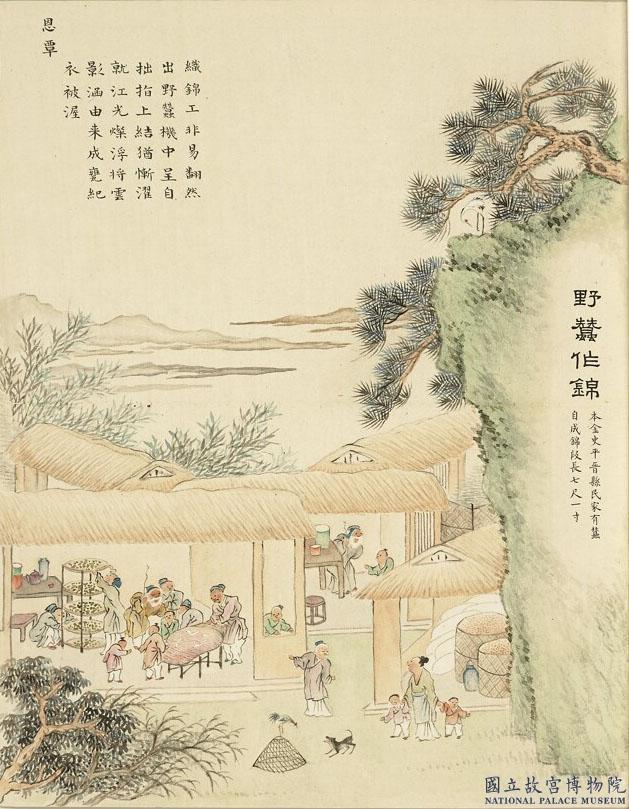 野蠶作錦
本金史平晉縣民家有蠶
自成錦段長七尺一寸
織錦工非易翻然
出野蠶機中呈自
拙指上結猶慚濯
就江光燦浮將雲
影涵由来成甕紀
衣被渥
恩覃
國立故宮博物院
NATIONAL PALACE MUSEUM